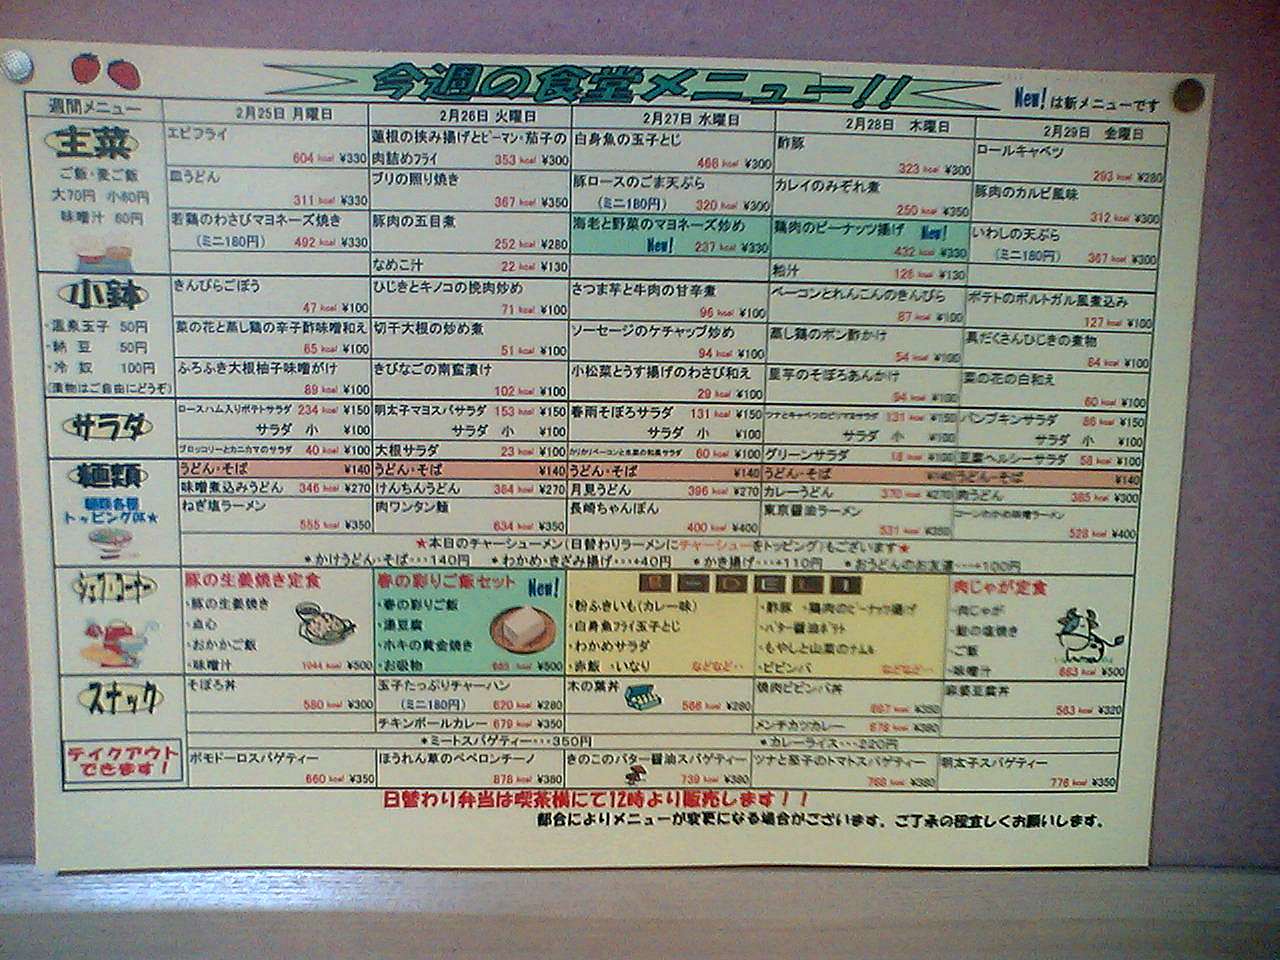 今週の食堂メニュー!!
New!は新メニューです
週間メニュー 2月25日 月曜日 2月26日 火曜日 2月27日 水曜日 2月28日 木曜日 2月29日 金曜日
主菜
ご飯・麦ご飯
大70円 小60円
味噌汁 60円
エビフライ 604 kcal ¥330
蓮根の挟み揚げとピーマン・茄子の
肉詰めフライ 353 kcal ¥300
白身魚の玉子とじ 466 kcal ¥300
酢豚 323 kcal ¥300
ロールキャベツ 293 kcal ¥280
皿うどん 311 kcal ¥330
ブリの照り焼き 367 kcal ¥350
豚ロースのごま天ぷら
(ミニ180円) 320 kcal ¥300
カレイのみぞれ煮 250 kcal ¥350
豚肉のカルビ風味 312 kcal ¥300
若鶏のわさびマヨネーズ焼き
(ミニ180円) 492 kcal ¥330
豚肉の五目煮 252 kcal ¥280
海老と野菜のマヨネーズ炒め
New! 237 kcal ¥330
鶏肉のピーナッツ揚げ New!
432 kcal ¥330
いわしの天ぷら
(ミニ180円) 367 kcal ¥300
なめこ汁 22 kcal ¥130
粕汁 126 kcal ¥130
小鉢
・温泉玉子 50円
・納 豆 50円
・冷 奴 100円
(漬物はご自由にどうぞ)
きんぴらごぼう 47 kcal ¥100
ひじきとキノコの挽肉炒め 71 kcal ¥100
さつま芋と牛肉の甘辛煮 96 kcal ¥100
ベーコンとれんこんのきんぴら 87 kcal ¥100
ポテトのポルトガル風煮込み 127 kcal ¥100
菜の花と蒸し鶏の辛子酢味噌和え 65 kcal ¥100
切干大根の炒め煮 51 kcal ¥100
ソーセージのケチャップ炒め 94 kcal ¥100
蒸し鶏のポン酢かけ 54 kcal ¥100
具だくさんひじきの煮物 84 kcal ¥100
ふろふき大根柚子味噌がけ 89 kcal ¥100
きびなごの南蛮漬け 102 kcal ¥100
小松菜とうす揚げのわさび和え 29 kcal ¥100
里芋のそぼろあんかけ 94 kcal ¥100
菜の花の白和え 60 kcal ¥100
サラダ
ロースハム入りポテトサラダ 234 kcal ¥150
明太子マヨスパサラダ 153 kcal ¥150
春雨そぼろサラダ 131 kcal ¥150
131 kcal ¥150
パンプキンサラダ 86 kcal ¥150
サラダ 小 ¥100 サラダ 小 ¥100 サラダ 小 ¥100 サラダ 小 ¥100 サラダ 小 ¥100
ブロッコリーとカニカマのサラダ 40 kcal ¥100
大根サラダ 23 kcal ¥100
カリカリベーコンと水菜の和風サラダ 60 kcal ¥100
グリーンサラダ 18 kcal ¥100
豆腐ヘルシーサラダ 58 kcal ¥100
麺類
麺類各種
トッピングOK★
うどん・そば ¥140 うどん・そば ¥140 うどん・そば ¥140 うどん・そば ¥140 うどん・そば ¥140
味噌煮込みうどん 346 kcal ¥270
けんちんうどん 384 kcal ¥270
月見うどん 396 kcal ¥270
カレーうどん 370 kcal ¥270
肉うどん 385 kcal ¥300
ねぎ塩ラーメン 585 kcal ¥350
肉ワンタン麺 634 kcal ¥350
長崎ちゃんぽん 400 kcal ¥400
東京醤油ラーメン 531 kcal ¥350
コーンわかめ味噌ラーメン 528 kcal ¥400
★本日のチャーシューメン(日替わりラーメンにチャーシューをトッピング)もございます★
*かけうどん・そば・・・140円 *わかめ・きざみ揚げ・・・+40円 *かき揚げ・・・+110円 *おうどんのお友達・・・+100円
シェフズコーナー
豚の生姜焼き定食
・豚の生姜焼き
・点心
・おかかご飯
・味噌汁 1044 kcal ¥500
春の彩りご飯セット New!
・春の彩りご飯
・湯豆腐
・ホキの黄金焼き
・お吸物 685 kcal ¥500
B-DELI
・粉ふきいも(カレー味)
・白身魚フライ玉子とじ
・わかめサラダ
・赤飯 ・いなり などなど・・
・酢豚 ・鶏肉のピーナッツ揚げ
・バター醤油ポテト
・もやしと山菜のナムル
・ビビンバ などなど・・
肉じゃが定食
・肉じゃが
・鮭の塩焼き
・ご飯
・味噌汁 683 kcal ¥500
スナック
そぼろ丼 580 kcal ¥300
玉子たっぷりチャーハン
(ミニ180円) 620 kcal ¥280
木の葉丼 566 kcal ¥280
焼肉ビビンバ丼 667 kcal ¥350
麻婆豆腐丼 563 kcal ¥320
チキンボールカレー 679 kcal ¥350
メンチカツカレー 878 kcal ¥380
*ミートスパゲティー・・・350円 *カレーライス・・・220円
テイクアウト
できます!
ポモドーロスパゲティー 660 kcal ¥350
ほうれん草のペペロンチーノ 878 kcal ¥380
きのこのバター醤油スパゲティー 739 kcal ¥380
ツナと茄子のトマトスパゲティー 768 kcal ¥380
明太子スパゲティー 776 kcal ¥350
日替わり弁当は喫茶横にて12時より販売します!!
都合によりメニューが変更になる場合がございます。ご了承の程宜しくお願いします。